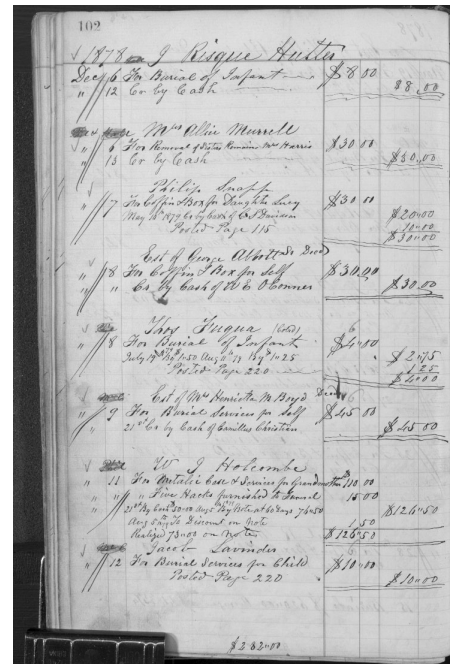 102
1878 J Risque Hutter
Decr 6 For Burial of Infant $8 00
" 12 Cr by Cash $8.00
Mrs Allie Murrell
" 6 For Removal of Sisters Remains Mrs Harris $30 00
" 13 Cr by Cash $30.00
Philip Snapp
" 7 For Coffin & Box for Daughter Lucy $30 00
May 1879 Cr by Cash of Davison $20"00
Posted Page 115 10"00
$30"00
Est of George Abbott Sr Decd
" 8 For Coffin & Box for Self $30.00
" " Cr. by Cash of W E O'Conner $30.00
Thos Fuqua (Cold)
" 8 For Burial of Infant $4"00
July $2"75
Posted Page 220 1 25
$4"00
Est of Mrs Henrietta M. Boyd Decd
" 9 For Burial Services for Self $45 00
21st Cr by Cash of Camillus Christian $45.00
W J Holcombe
" 11 For Metalic Case & Services for Grandmother 110.00
" " " Five Hacks furnished to Funeral 15 00
21st By Cash 50.00 By Note at 60 days 76"50 $126"50
To Discount on Note 1.50
Realized 75"00 on Note $126"50
Jacob Lavinder
" 12 For Burial Services for Child $10"00
Posted Page 220 $10"00
$282"00